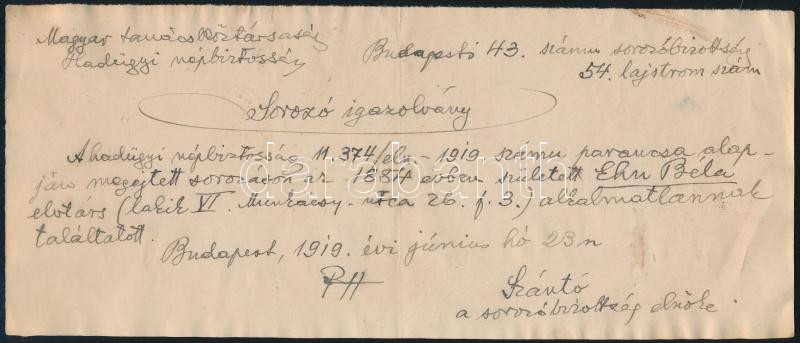 Magyar tanácsköztársaság
Hadügyi népbiztosság
Budapesti 43. számu sorozóbizottság
54. lajstrom szám
Sorozó igazolvány
A hadügyi népbiztosság 11.374/eln-1919 számu parancsa alap-
ján megejtett sorozáson az 1884 évben született Ehn Béla
elvtárs (lakik VI. Munkácsy-utca 26. f. 3.) alkalmatlannak
találtatott.
Budapest, 1919. évi június hó 23n
PH
Szántó
a sorozóbizottság elnöke.
darabanth